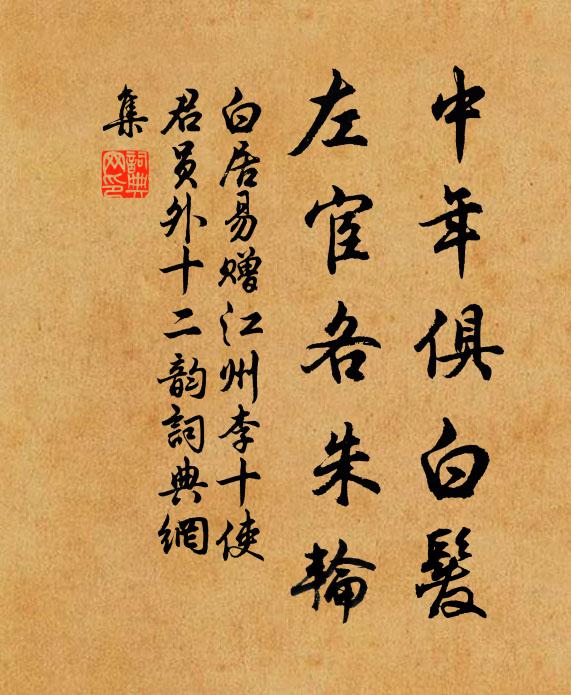 中年俱白髮
左宦各朱輪
白居易贈江州李十使
君員外十二韵詞典網
集
詞典網印